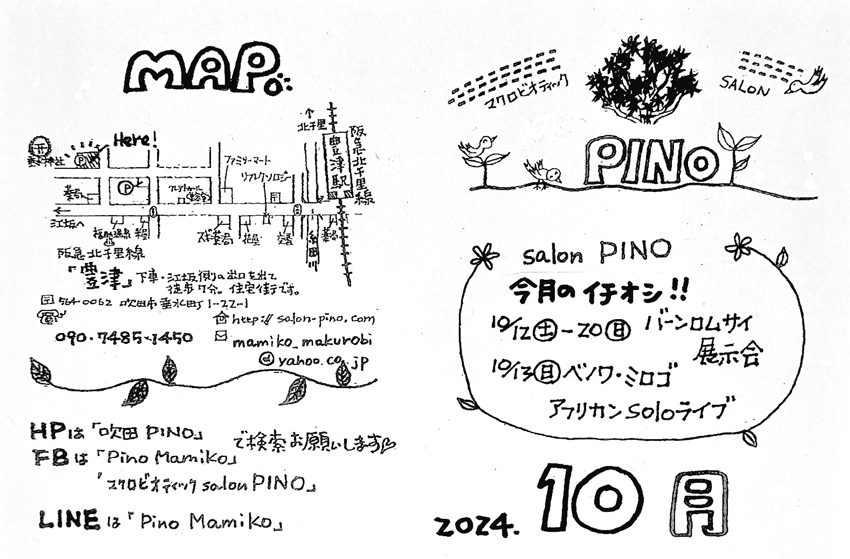 MAP
Here!
北千里
阪急北千里線
豊津駅
ファミリーマート
リフレクソロジー
P
江坂へ
阪急北千里線
『豊津』下車・江坂側の出口を出て
徒歩7分。住宅街です。
〒564-0062 吹田市垂水町1-22-1
090-7485-1450
http://salon-pino.com
mamiko_makurobi
@yahoo.co.jp
HPは「吹田PINO」
で検索お願いします
FBは「Pino Mamiko」
「マクロビオティックsalon PINO」
LINEは「Pino Mamiko」
マクロビオティック
SALON
PINO
salon PINO
今月のイチオシ!!
10/12㊏-20㊐ バーンロムサイ
展示会
10/13㊐ベノワ・ミロゴ
アフリカンsoloライブ
2024. 10月